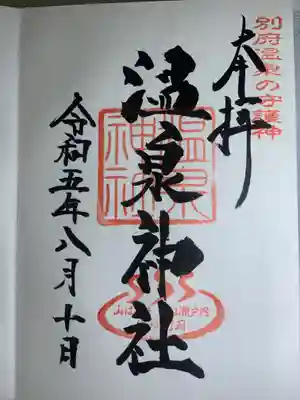 別府温泉の守護神
奉拝
温泉神社
温泉神社
令和五年八月十日